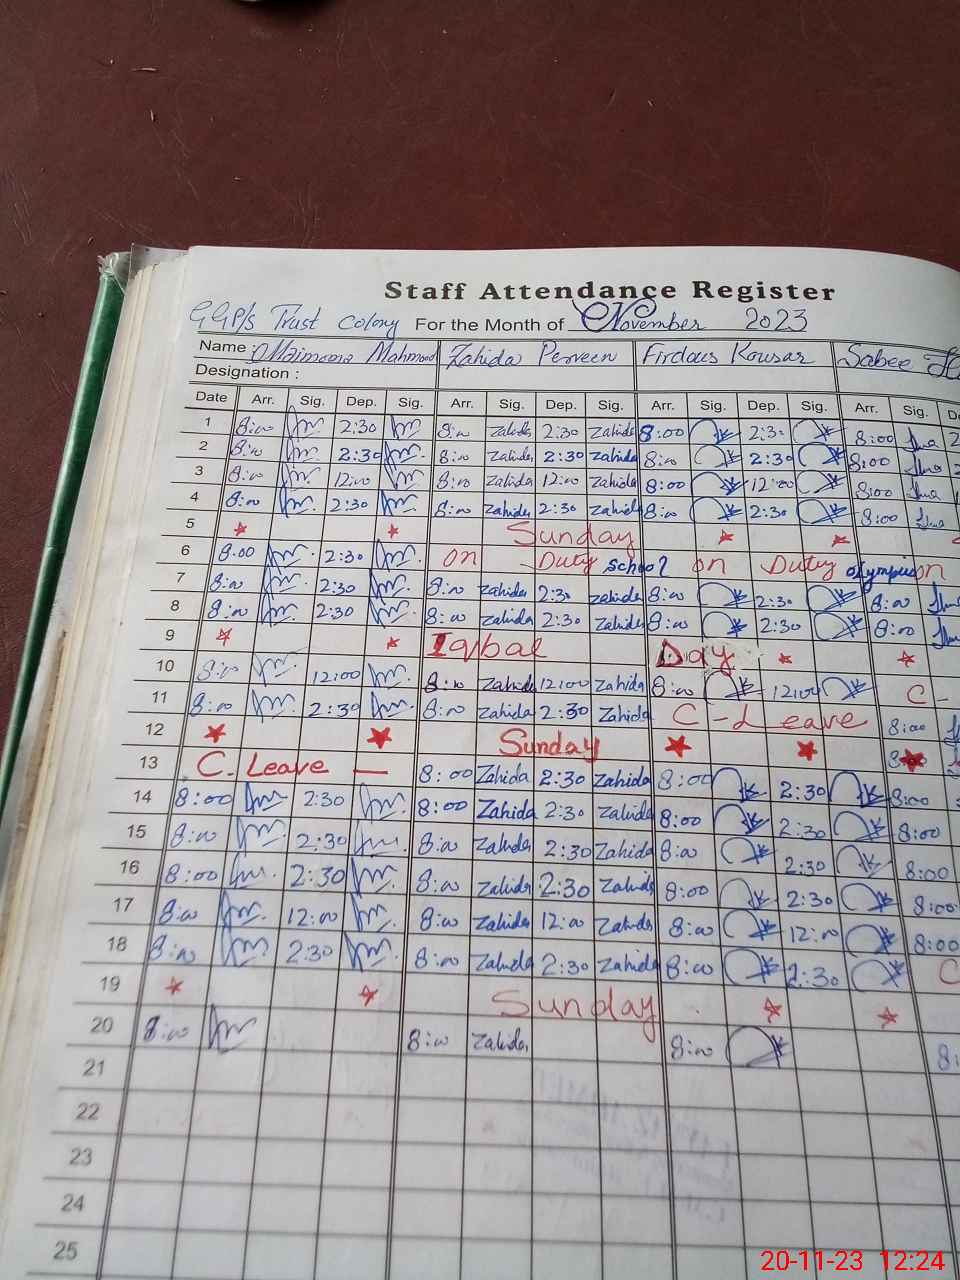 Staff Attendance Register
GGP/s Trust Colony For the Month of November 2023
Name : Maimoona Mahmood Zahida Perveen Firdous Kousar Sabee
Designation :
Date Arr. Sig. Dep. Sig. Arr. Sig. Dep. Sig. Arr. Sig. Dep. Sig. Arr. Sig.
1 8:00 2:30 8:00 Zahida 2:30 Zahida 8:00 2:30 8:00
2 8:00 2:30 8:00 Zahida 2:30 Zahida 8:00 2:30 8:00
3 8:00 12:00 8:00 Zahida 12:00 Zahida 8:00 12:00 8:00
4 8:00 2:30 8:00 Zahida 2:30 Zahida 8:00 2:30 8:00
5 Sunday
6 8:00 2:30 On Duty School On Duty Olympus on
7 8:00 2:30 8:00 Zahida 2:30 Zahida 8:00 2:30 8:00
8 8:00 2:30 8:00 Zahida 2:30 Zahida 8:00 2:30 8:00
9 Iqbal Day
10 8:00 12:00 8:00 Zahida 12:00 Zahida 8:00 12:00 C -
11 8:00 2:30 8:00 Zahida 2:30 Zahida C - Leave 8:00
12 Sunday
13 C. Leave — 8:00 Zahida 2:30 Zahida 8:00 2:30 8:00
14 8:00 2:30 8:00 Zahida 2:30 Zahida 8:00 2:30 8:00
15 8:00 2:30 8:00 Zahida 2:30 Zahida 8:00 2:30 8:00
16 8:00 2:30 8:00 Zahida 2:30 Zahida 8:00 2:30 8:00
17 8:00 12:00 8:00 Zahida 12:00 Zahida 8:00 12:00 8:00
18 8:00 2:30 8:00 Zahida 2:30 Zahida 8:00 2:30 C
19 Sunday
20 8:00 8:00 Zahida 8:00 8:
21
22
23
24
25
20-11-23 12:24